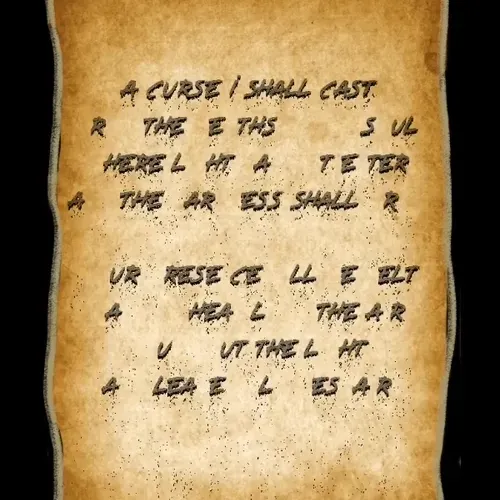 A CURSE I SHALL CAST
R THE E THS S UL
HERE L HT A T E TER
A THE AR ESS SHALL R
UR RESE CE LL E ELT
A HEA L THE A R
U UT THE L HT
A LEA E L ES A R